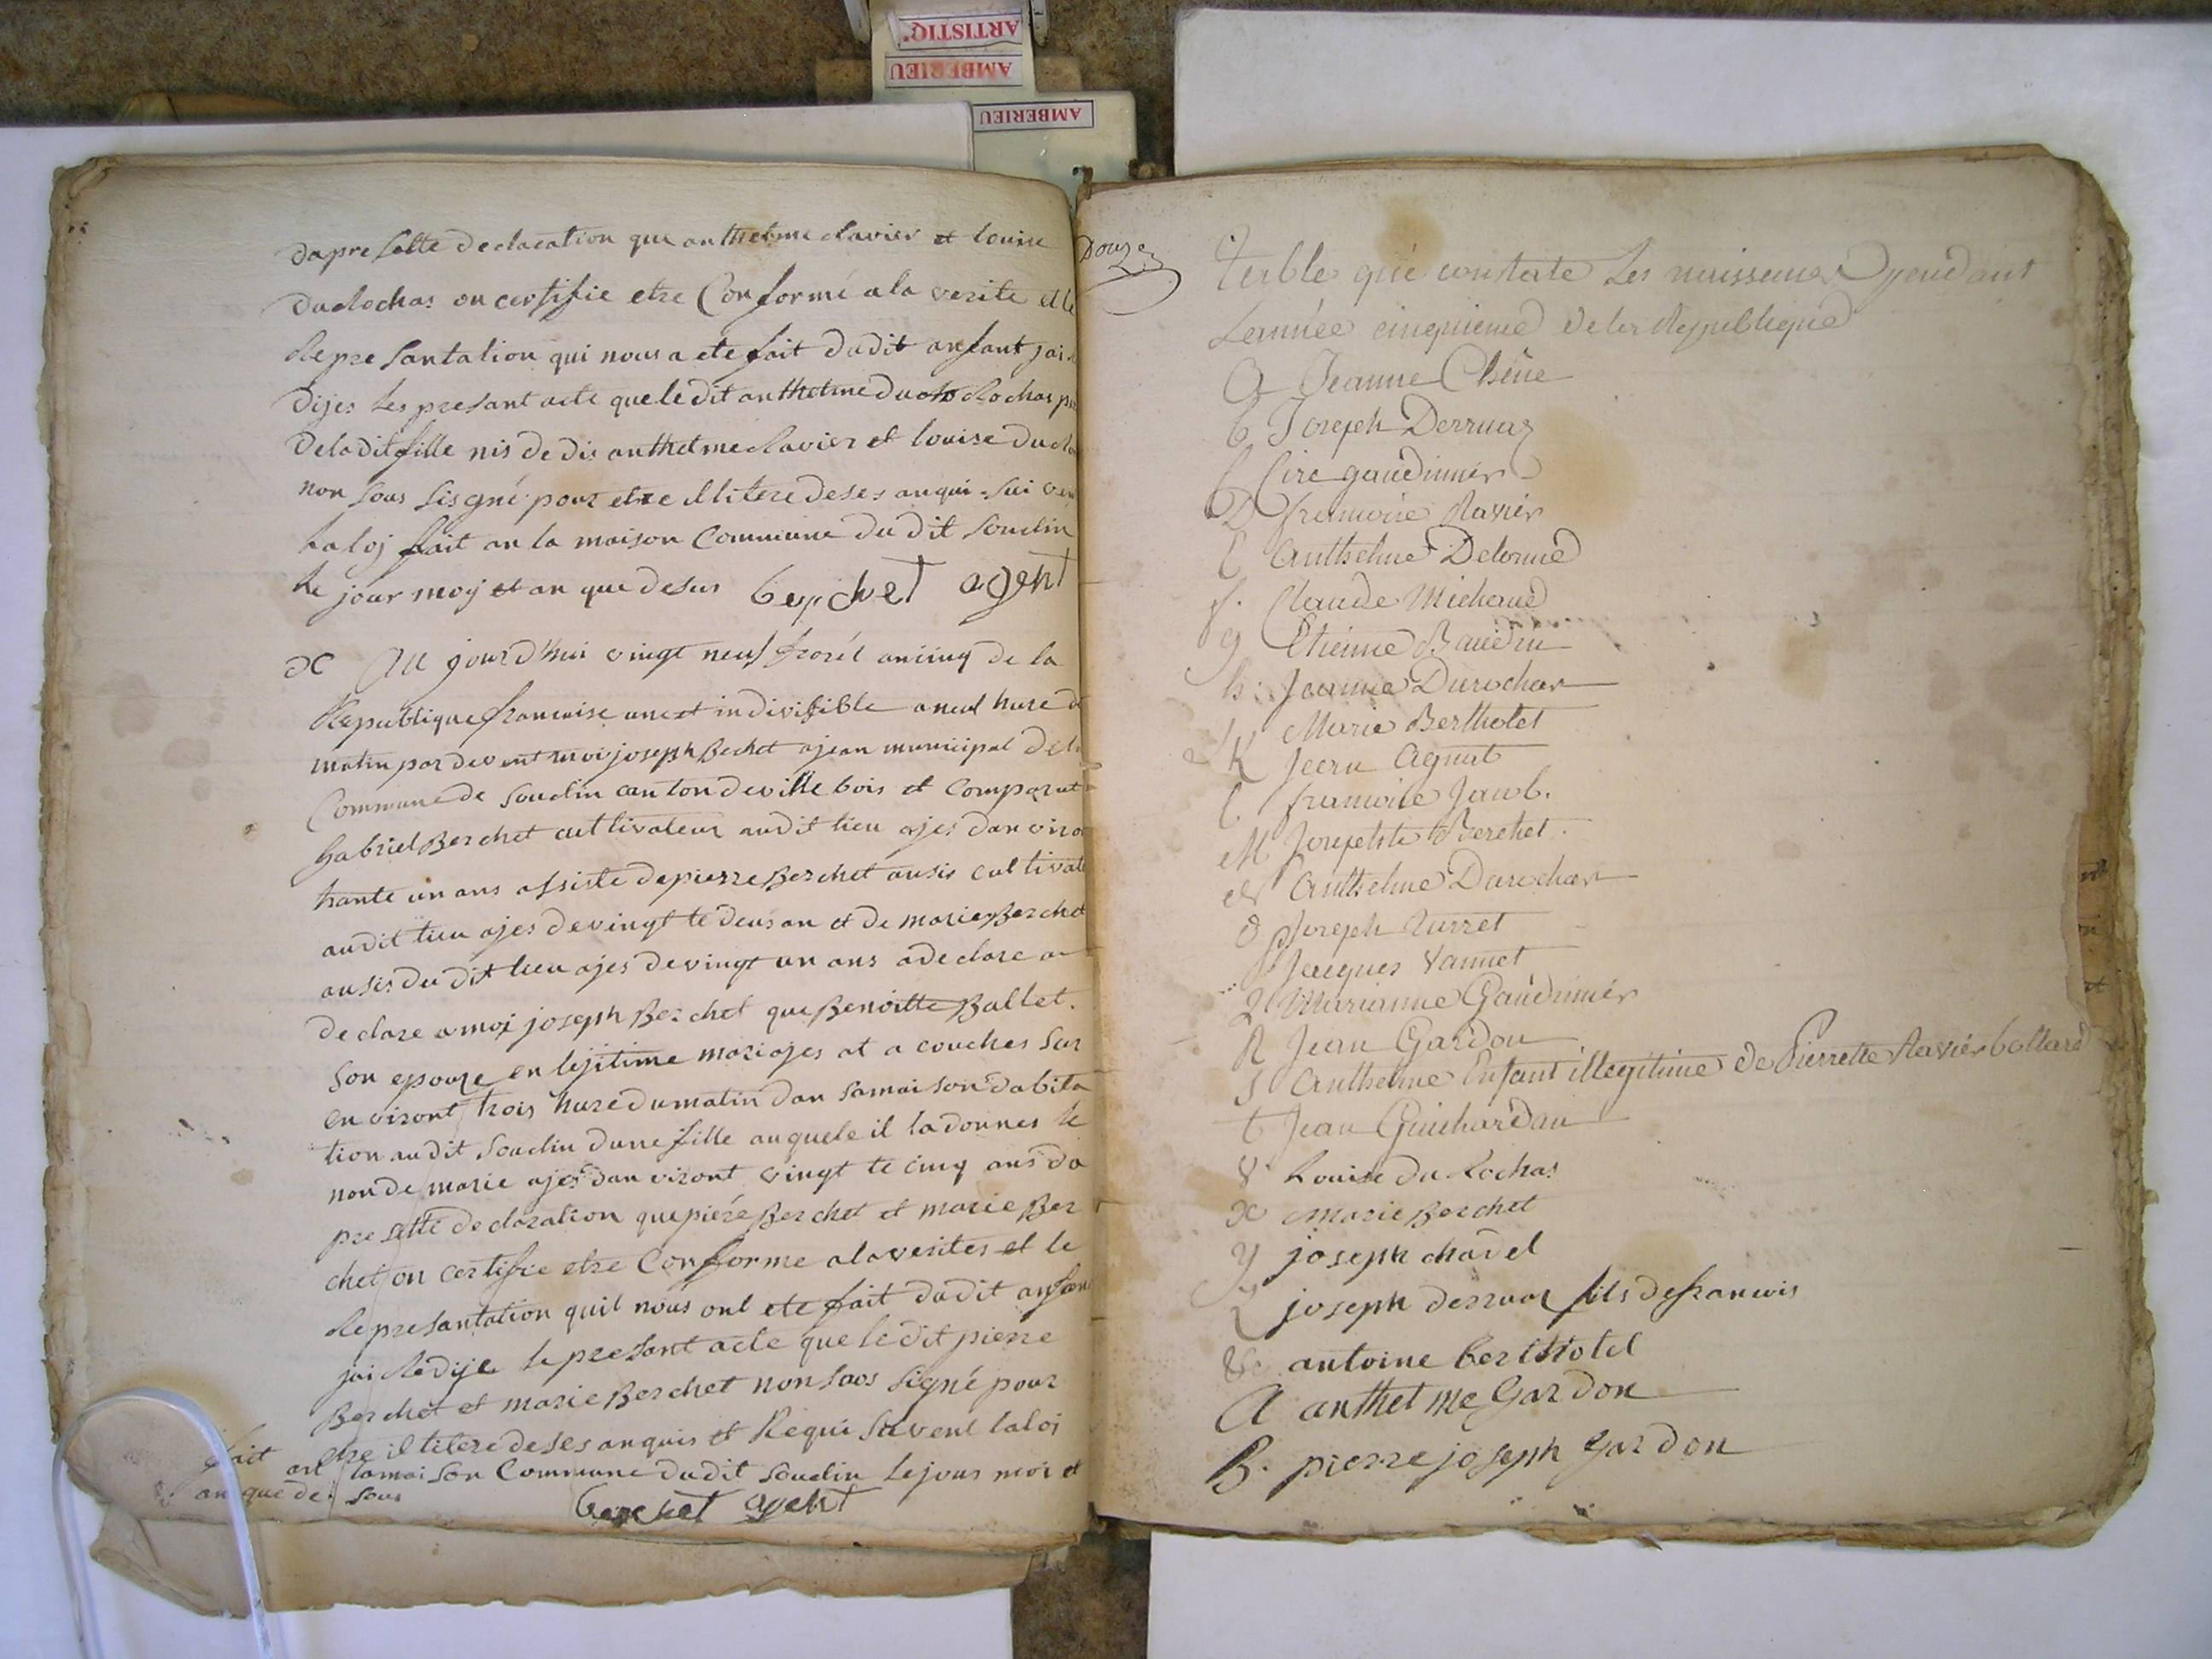 ARTISTIQ.
AMBERIEU
AMBERIEU
Dapre sette declaration que anthelme Ravier et louise
Durochas on certifie etre Conformé ala verite et le
Represantation qui nous a ete fait dudit anfant jai
Dijes les presant acte que le dit anthelme du Rochas
Deladit fille nis de dis anthelme Ravier et louise du
non sous sisgné pour etre illitere deses anqui sui
la loj fait an la maison Commune du dit soudin
le jour moij et an que desus berchet agent
x Au jourd'hui vingt neuf florel ancinq de la
Republique francoise une et indivisible a neuf hure
matin par devent moi joseph Bechet ajean municipal
Commune de soudin canton deville bois et comparut
Gabriel Berchet cultivateur audit lieu ajes dan
trante un ans assiste depierre Berchet ausis
audit lieu ajes devingt te deus an et de marie Berchet
ausis du dit lieu ajes devingt un ans adeclare a
declare a moi joseph Berchet que Benoitte Ballet.
son epouze en lejitime mariajes at a couches sur
en viront trois hure dumatin dan samaison dabita
tion audit soudin dune fille auquele il ladonnes le
non de marie ajes dan viront vingt te cinq ans da
pre sette declaration que pieré Berchet et marie Ber
chet on certifie etre Conforme alaverites et le
Represantation quil nous ont ete fait dudit
jai Redije le presant acte que le dit pierre
Berchet et marie Berchet non sous signé pour
etre il titere deses anquis et Requi suivent laloi
fait ant lamaison Commune dudit soudin le jour mois et
an que de sous
berchet agent
Douze
Table qui constate Les naissences pendant
Lannée cinquieme de la Republique
A Jeanne Chêne
b Joseph Derruaz
C Cire gaudinnier
D francoise Ravier
E Anthelme Delorme
f. Claude Michaud
g Etienne Baudin
h. Jeanne Durochar
Marie Berthelet
K Jean Agnut
l francoise Jacob.
M Josephte Berchet.
N Anthelme Durochar
O Joseph Turret
P Jacques Vannet
Q Marianne Gaudinnier
R Jean Gardon
S Anthelme Enfant illegitime de Pierrette Ravier bollard
t Jean Guichardan
V Louise du Rochas
x marie Berchet
y joseph chadel
Z joseph derruaz fils defrancois
&c antoine berthotel
A anthelme Gardon
B. pierre joseph gardon